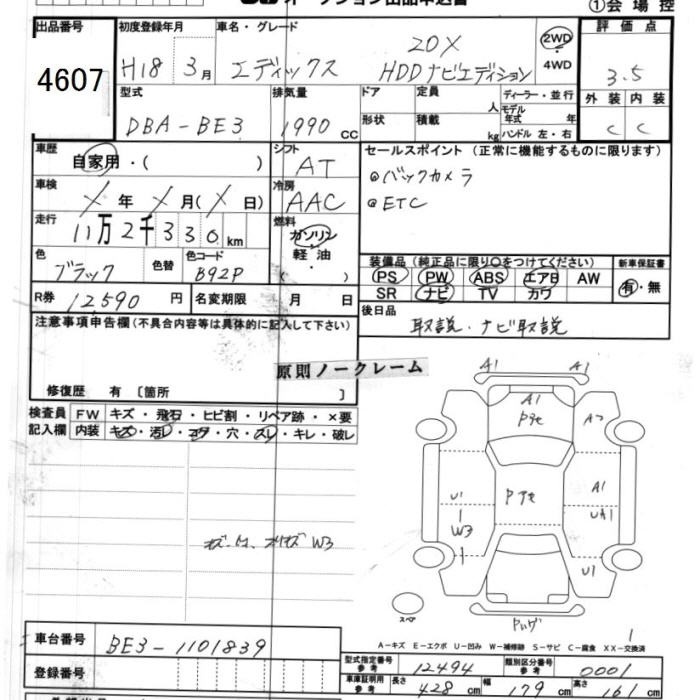 ①会場控
出品番号
4607
初度登録年月
H18 3月
車名・グレード
エディックス
20X
HDDナビエディション
2WD
4WD
評価点
3.5
外装 内装
C C
型式
DBA-BE3
排気量
1990 CC
ドア
形状
定員
人
積載
kg
ディーラー・並行
モデル
年式 年
ハンドル 左・右
車歴
自家用・( )
シフト
AT
セールスポイント (正常に機能するものに限ります)
◎バックカメラ
◎ETC
車検
X年 X月(X日)
冷房
AAC
走行
11万2千330km
燃料
ガソリン
軽油
・
( )
色
ブラック
色替
色コード
B92P
装備品 (純正品に限り○をつけてください)
PS PW ABS エアB AW
SR ナビ TV カワ
新車保証書
有・無
R券 12590 円
名変期限 月 日
後日品
取説・ナビ取説
注意事項申告欄(不具合内容等は具体的に記入して下さい)
原則ノークレーム
修復歴 有 〔箇所 〕
検査員
記入欄
FW キズ・飛石・ヒビ割・リペア跡・×要
内装 キズ・汚レ・コゲ・穴・スレ・キレ・破レ
A1 A1
A1
U1
W3
A1
UA1
U1
スペア
A-キズ E-エクボ U-凹み W-補修跡 S-サビ C-腐食 XX-交換済
車台番号
BE3-1101839
登録番号
型式指定番号
参考
12494
類別区分番号
参考
0001
車庫証明用
参考
長さ 428 cm 幅 179 cm 高さ 161 cm